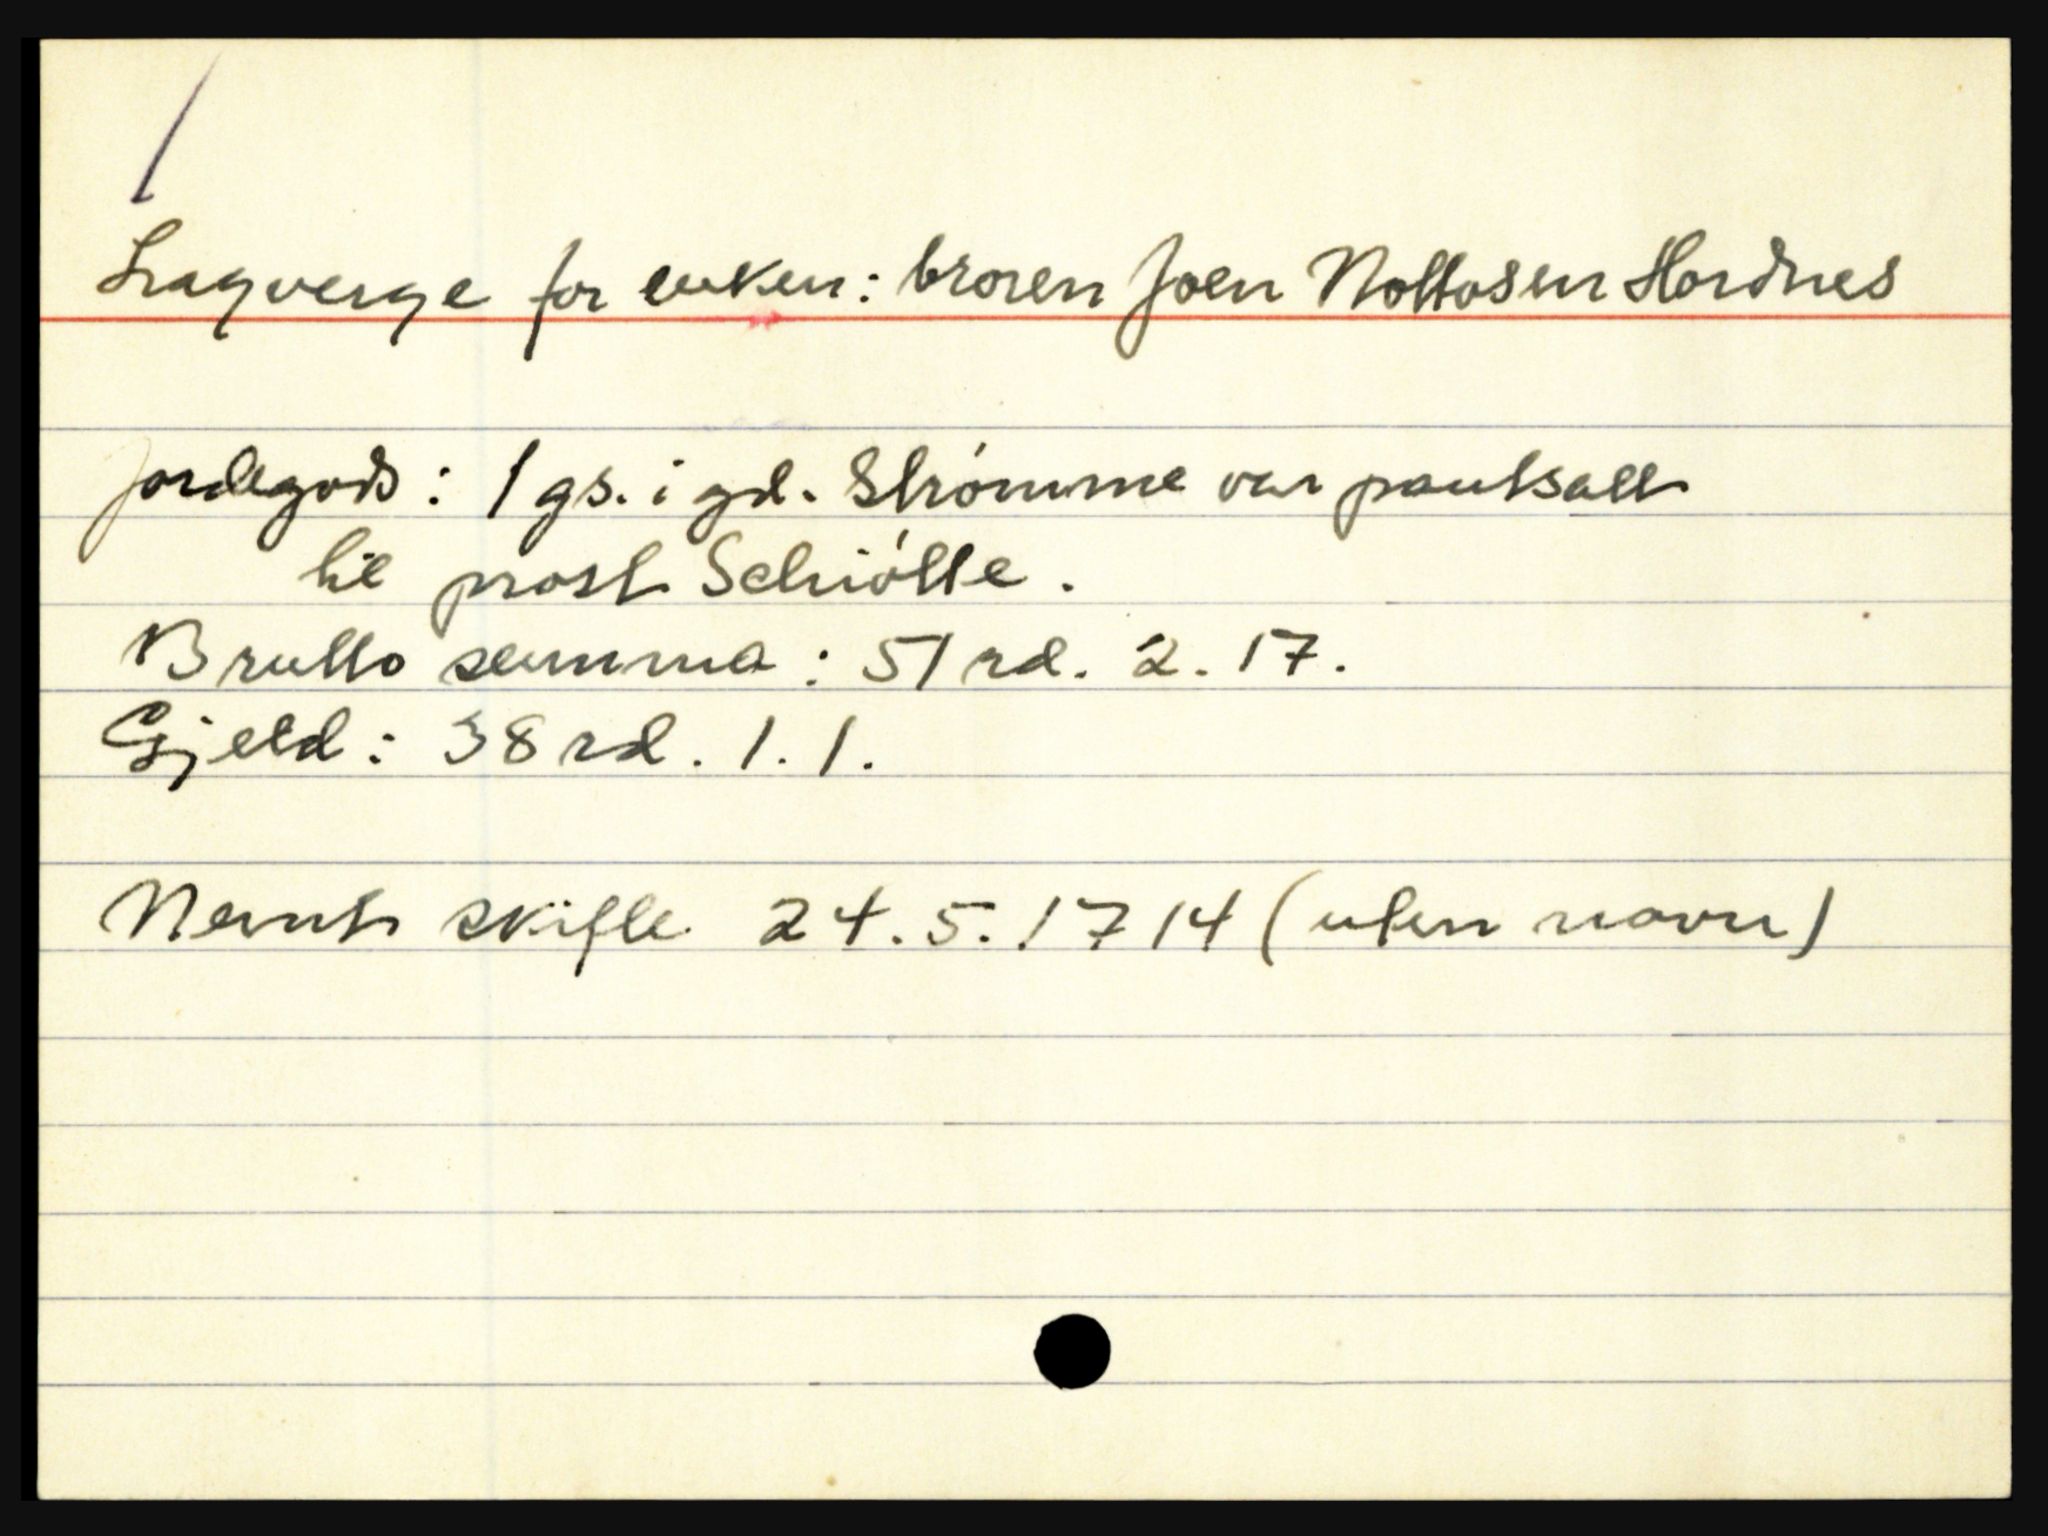 Lagverge for enken: broren Joen Nottosen Hordnes
Jordegods: 1 gs. i gd. Strømme var pantsatt
til prost Schiøtte.
Brutto summa: 51 rd. 2. 17.
Gjeld: 38 rd. 1. 1.
Nevnt skifte 24.5.1714 (uten navn)